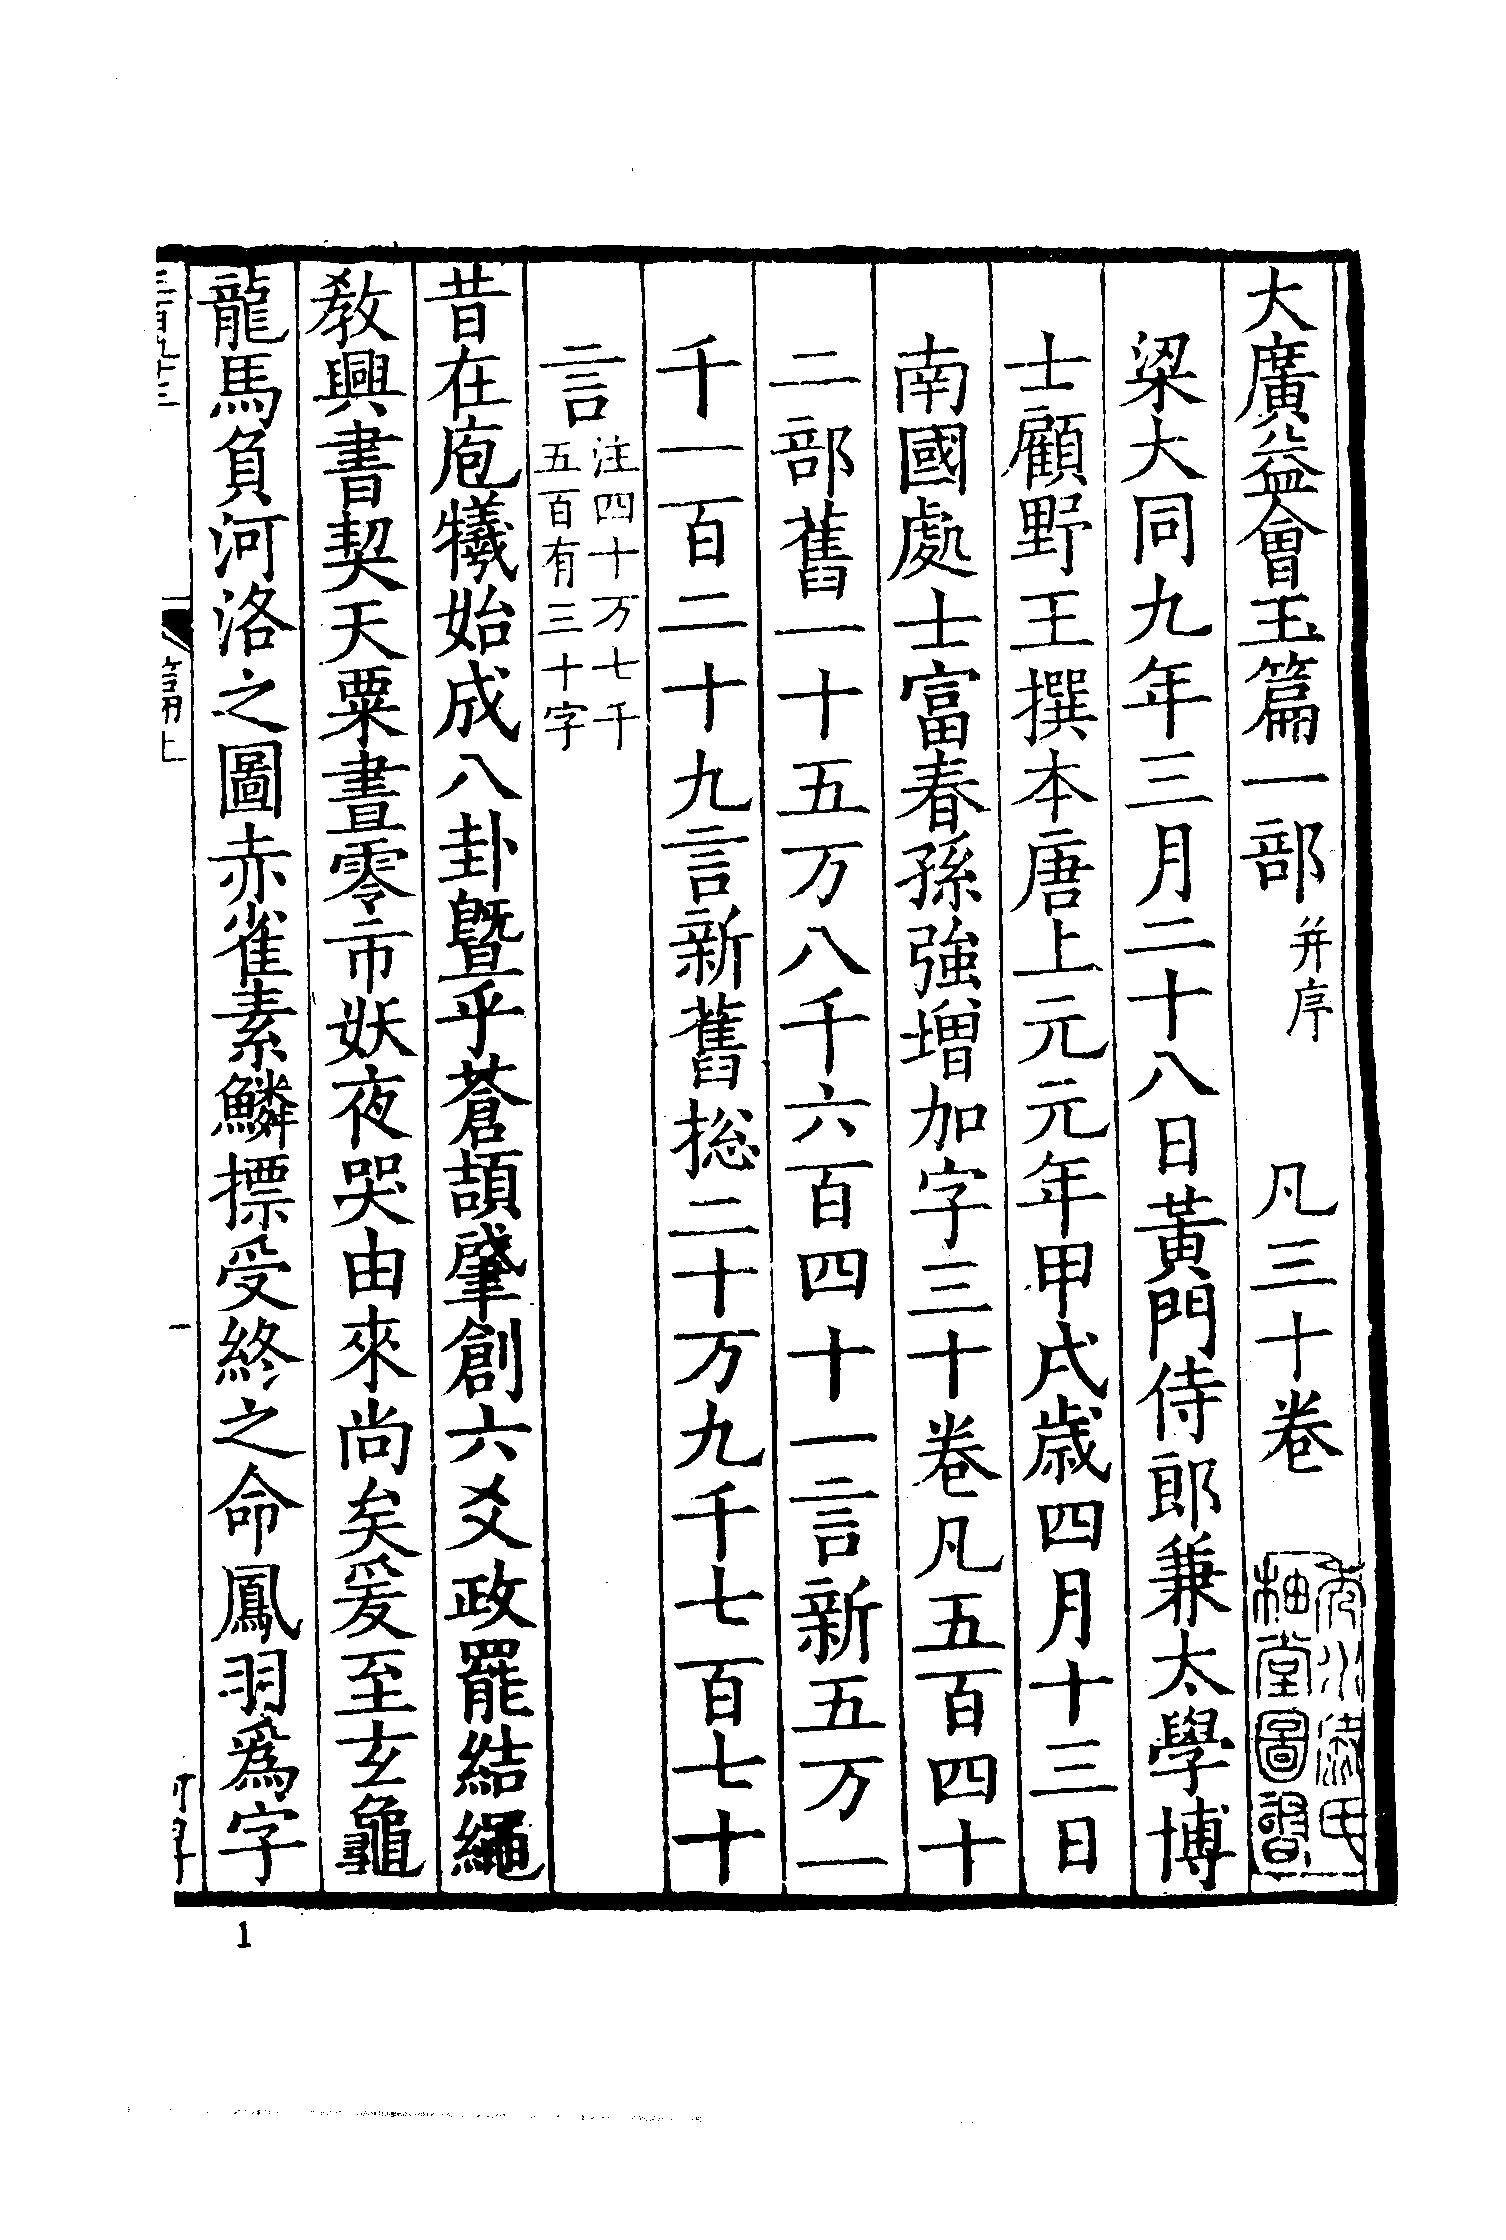 大廣益會玉篇一部并序　凡三十卷
梁大同九年三月二十八日黃門侍郎兼太學博
士顧野王撰本唐上元元年甲戌歳四月十三日
南國處士富春孫強增加字三十卷凡五百四十
二部舊一十五万八千六百四十一言新五万一
千一百二十九言新舊捴二十万九千七百七十
言注四十万七千
五百有三十字
昔在庖犧始成八卦暨乎蒼頡肈創六爻政罷結繩
教興書契天粟晝零市妖夜哭由來尚矣爰至玄龜
龍馬負河洛之圖赤雀素鱗摽受終之命鳳羽爲字
篇上
一
1